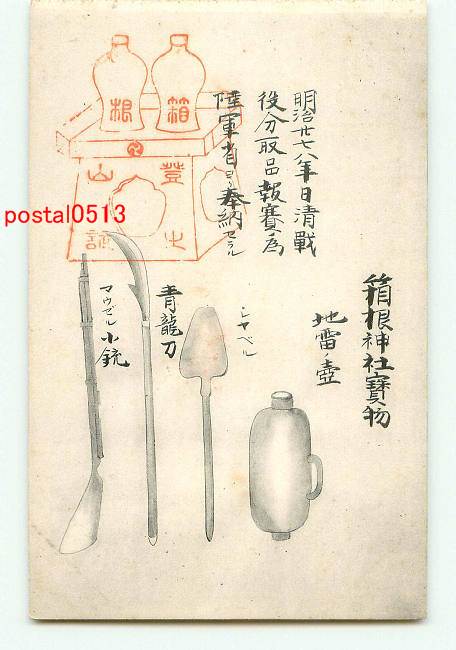 箱根神社寶物
地雷ノ壺
明治廿七八年日清戰
役分取品報賽ノ為
陸軍省ヨリ奉納セラル
シヤベル
青龍刀
マウゼル小銃
箱
根
登山
之証
postal0513